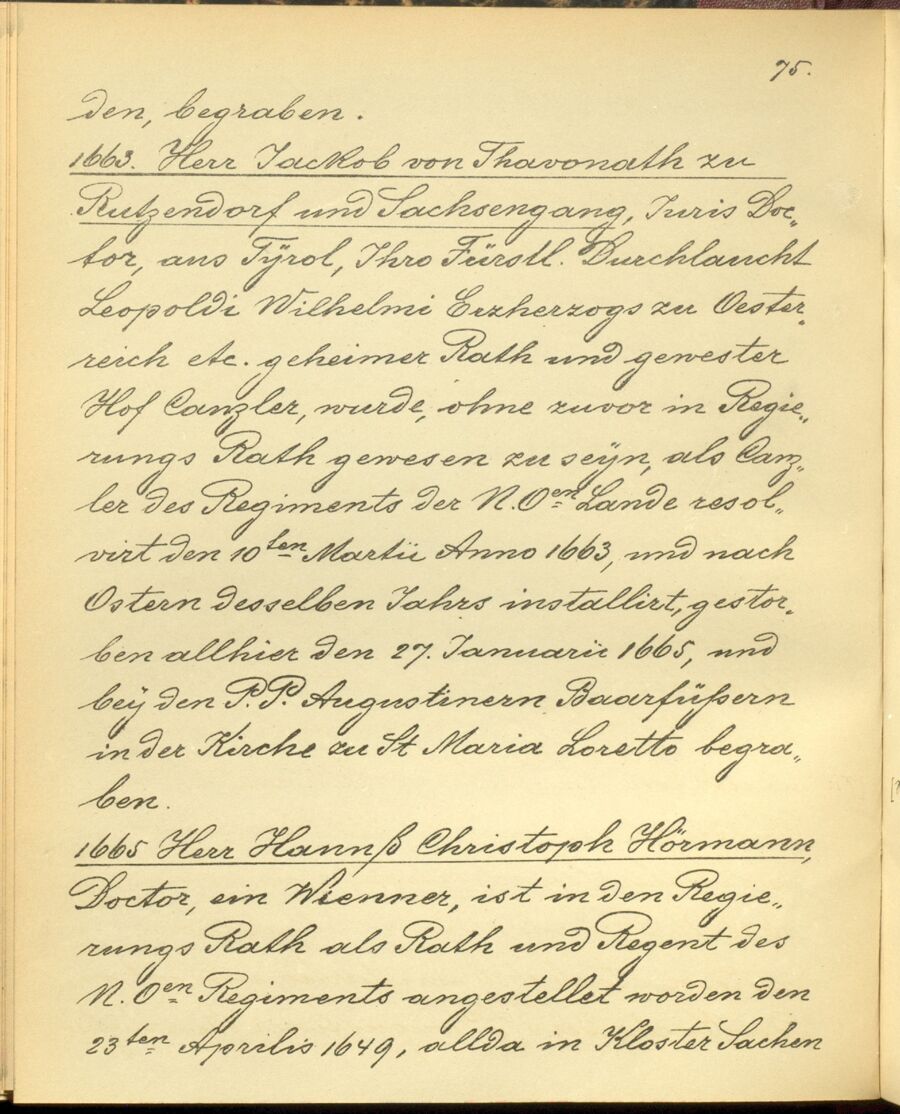 75.
den, begraben.
1663. Herr Jackob von Thavonath zu
Rutzendorf und Sachsengang, Juris Doc„
tor, aus Tÿrol, Ihro Fürstl. Durchlaucht
Leopoldi Wilhelmi Erzherzogs zu Oester„
reich etc. geheimer Rath und gewester
Hof Canzler, wurde, ohne zuvor in Regie„
rungs Rath gewesen zu seÿn, als Canz„
ler des Regiments der N. Oen Lande resol„
virt den 10ten Martii Anno 1663, und nach
Ostern desselben Jahrs installirt, gestor„
ben allhier den 27. Januarii 1665, und
beÿ den P. P. Augustinern Baarfüßern
in der Kirche zu St Maria Loretto begra„
ben.
1665 Herr Hannß Christoph Hörmann,
Doctor, ein Wienner, ist in den Regie„
rungs Rath als Rath und Regent des
N. Oen Regiments angestellet worden den
23ten Aprilis 1649, allda in Kloster Sachen